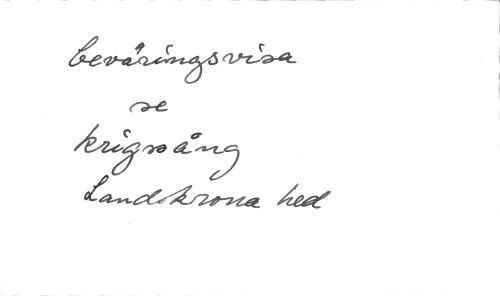 beväringsvisa
se
krigssång
Landskrona hed